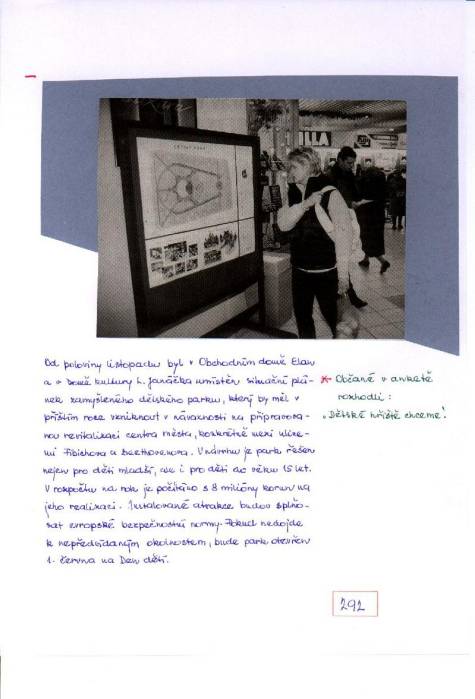 DĚTSKÝ PARK
ILLA
Od poloviny listopadu byl v Obchodním domě Elan
a v Domě kultury L. Janáčka umístěn situační plá-
nek zamýšleného dětského parku, který by měl v
příštím roce vzniknout v návaznosti na připravova-
nou revitalizaci centra města, konkrétně mezi ulice-
mi Fibichova a Beethovenova. V návrhu je park řešen
nejen pro děti mladší, ale i pro děti do věku 15 let.
V rozpočtu na rok je počítáno s 8 milióny korun na
jeho realizaci. Instalované atrakce budou splňo-
vat evropské bezpečnostní normy. Pokud nedojde
k nepředvídaným okolnostem, bude park otevřen
1. června na Den dětí.
* Občané v anketě
rozhodli:
"Dětské hřiště chceme!
292